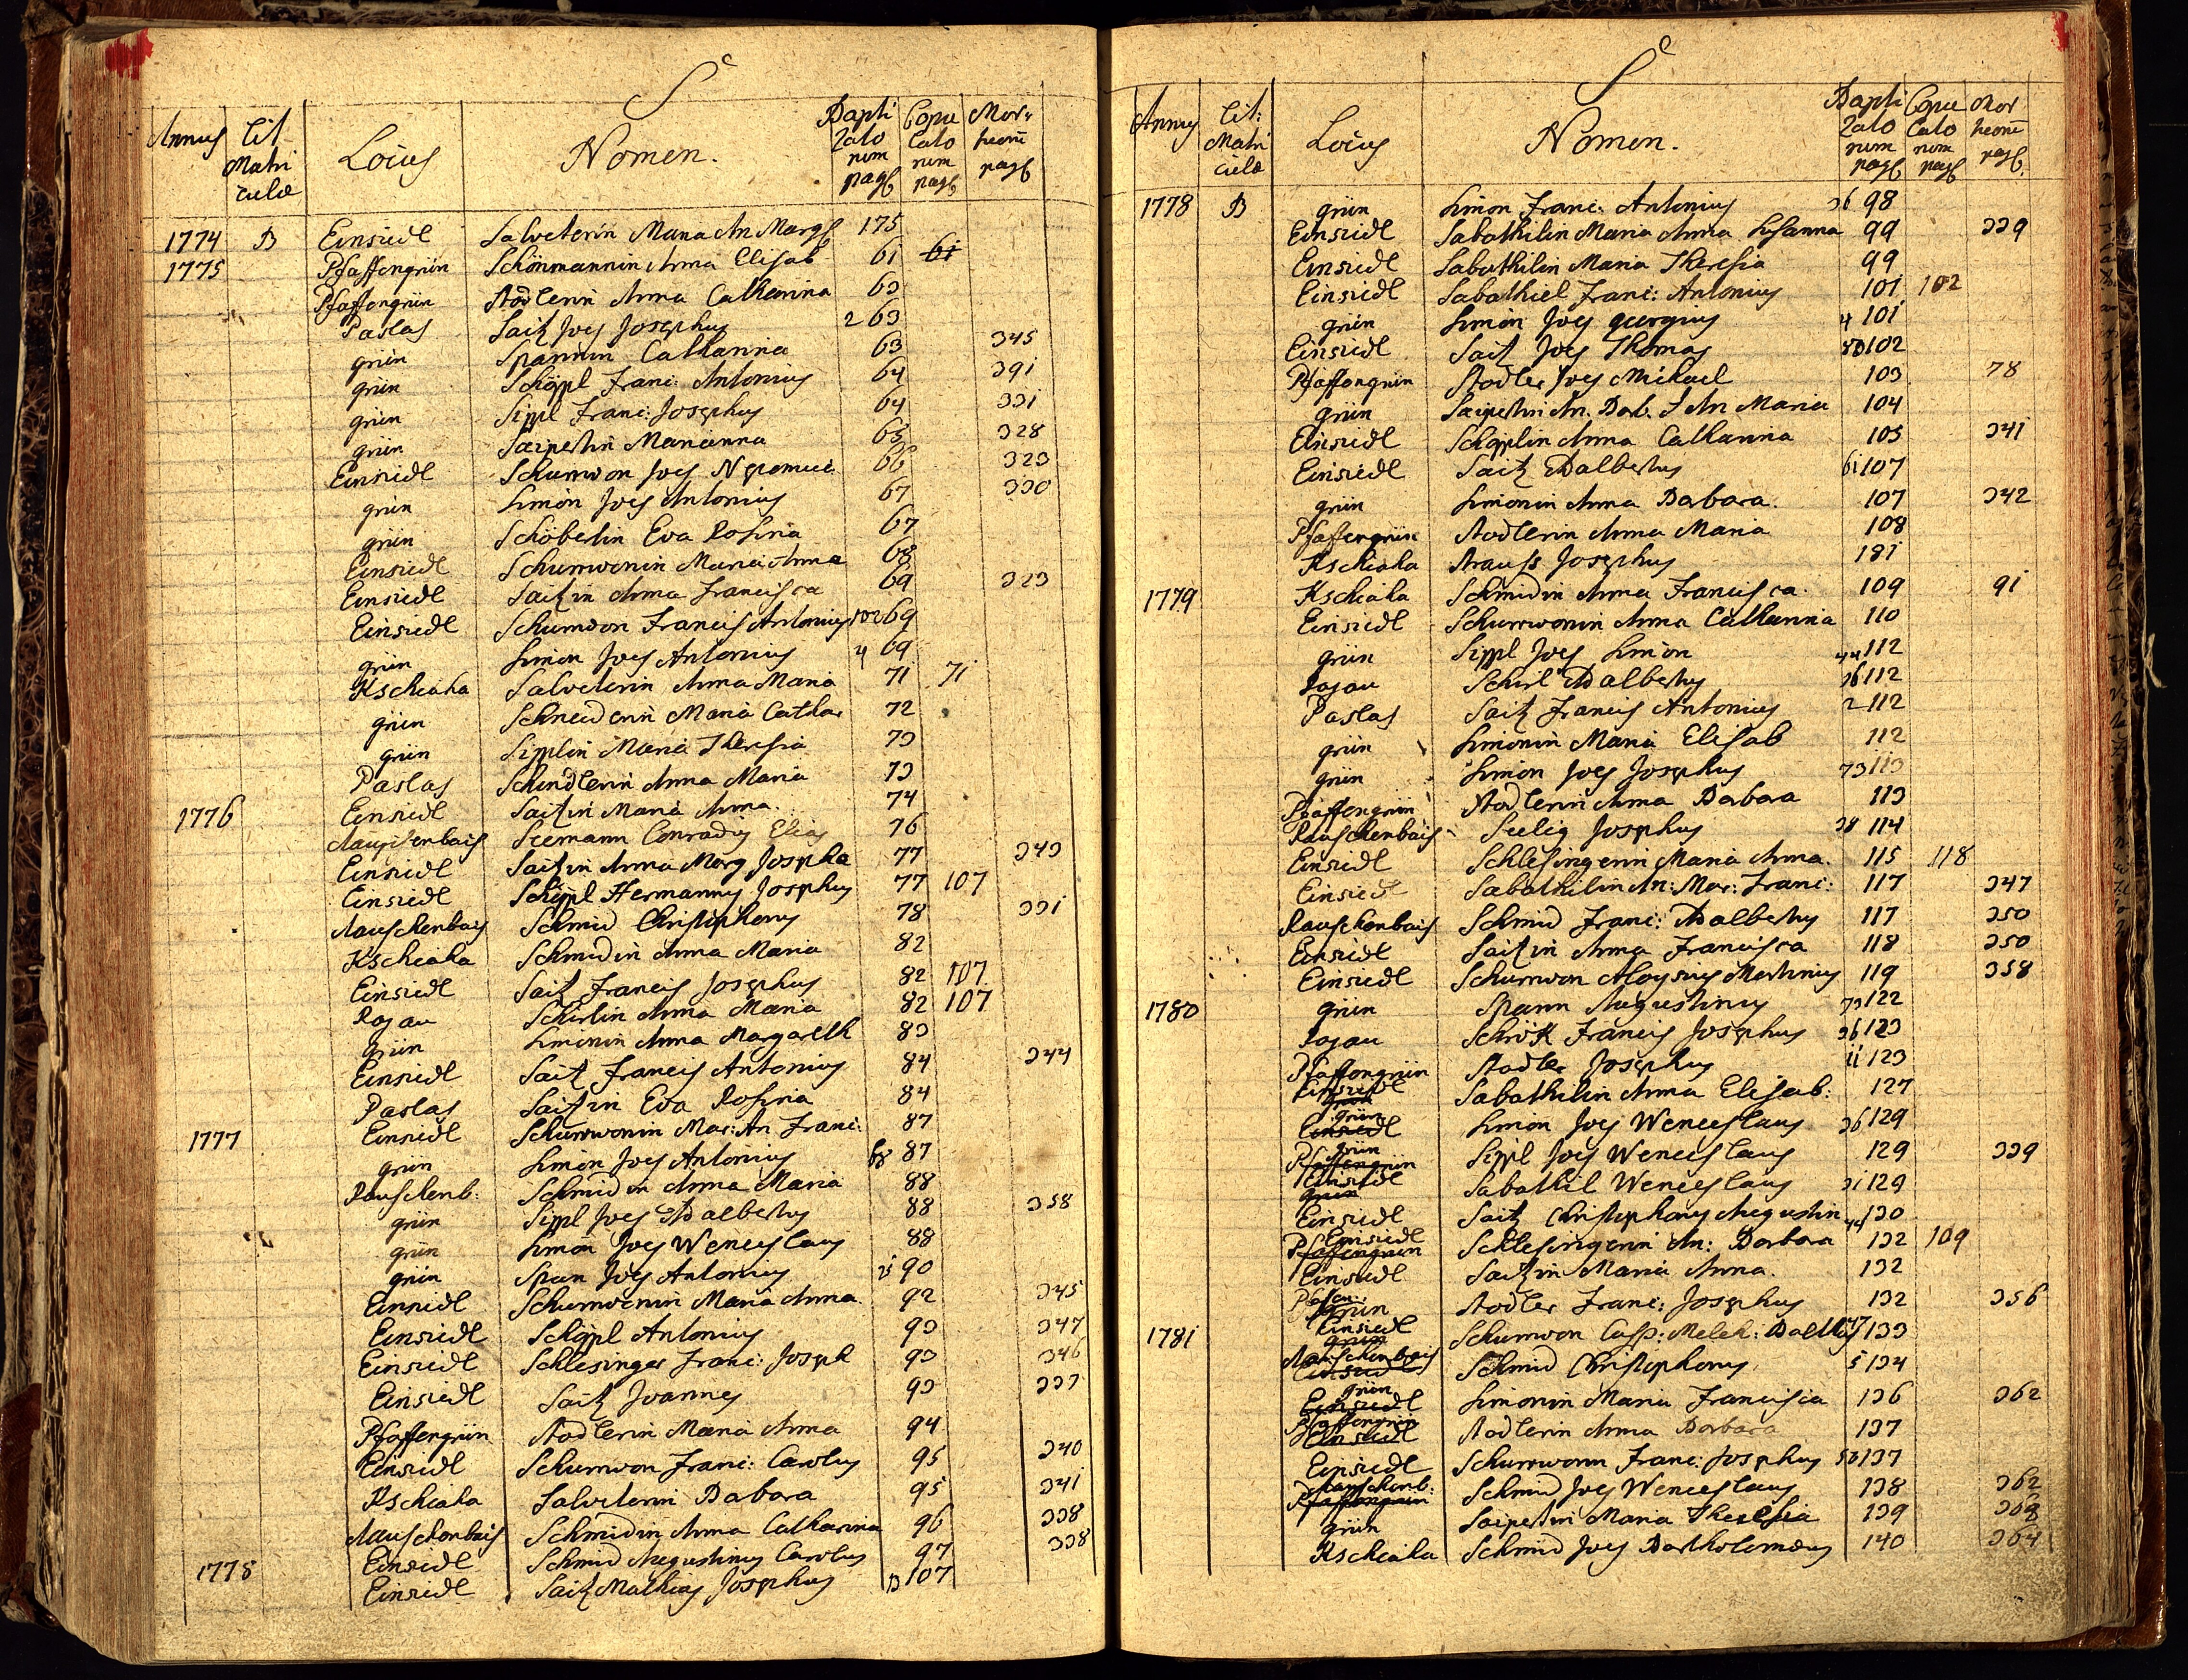 S
Annus Lit Matriculæ Locus Nomen. Baptizatorum pag Copulatorum pag Mortuorum pag
1774 B Einsiedl Salveterin Maria An Marg 175
1775 Pfaffengrün Schönmannin Anna Elisab 61 61
Pfaffengrün Stodlerin Anna Catharina 63
Paslas Saitz Joes Josephus 2 63
grün Spannin Catharina 63 345
grün Schöppl Franc: Antonius 64 391
grün Sippl Franc: Josephus 64 331
grün Saipertin Marianna 65 328
Einsiedl Schumwon Joes Nepomuc 66 323
grün Simon Joes Antonius 67 330
grün Schöberlin Eva Rosina 67
Einsiedl Schumwonin Maria Anna 68
Einsiedl Saitzin Anna Francisca 69 323
Einsiedl Schumwon Francis Antonius 69
grün Simon Joes Antonius 4 69
Kschiaha Salveterin Anna Maria 71 71
grün Schneiderin Maria Cathar 72
grün Sipplin Maria Theresia 73
Paslas Schindlerin Anna Maria 73
1776 Einsiedl Saitzin Maria Anna. 74
Rauschenbais Seemann Conradus Elias 76
Einsiedl Saitzin Anna Marg Josepha 77 343
Einsiedl Schöppl Hermannus Josephus 77 107
Rauschenbais Schmid Christophorus 78 331
Kschiaha Schmidin Anna Maria 82
Einsiedl Saitz Francis Josephus 82 107
Rojau Schirlin Anna Maria 82 107
grün Simonin Anna Margareth 83
Einsiedl Saitz Francis Antonius 84 344
Paslas Saitzin Eva Rosina 84
1777 Einsiedl Schumwonin Mar: An Franc: 87
grün Simon Joes Antonius 68 87
Rauschenb: Schmidin Anna Maria 88
grün Sippl Joes Adalbertus 88 358
grün Simon Joes Wenceslaus 88
grün Span Joes Antonius 25 90
Einsiedl Schumwonin Maria Anna. 92 345
Einsiedl Schöppl Antonius 93 347
Einsiedl Schlesinger Franc: Joseph 93 346
Einsiedl Saitz Joannes 93 337
Pfaffengrün Stodlerin Maria Anna 94
Einsiedl Schumwon Franc: Carolus 95 340
Kschiaha Salveterin Babara 95 341
Rauschenbais Schmidin Anna Catharina 96 338
Einsiedl Schmid Augustinus Carolus 97 338
1778 Einsiedl Saitz Mathias Josephus 13 107
S
Annus Lit: Matriculæ Locus Nomen. Baptizatorum pag Copulatorum pag Mortuorum pag
1778 B grün Simon Franc: Antonius 36 98
Einsiedl Sabathilin Maria Anna Susanna 99 339
Einsiedl Sabathilin Maria Theresia 99
Einsiedl Sabathiel Franc: Antonius 101 102
grün Simon Joes georgius 4 101
Einsiedl Saitz Joes Thomas 80 102
Pfaffengrün Stodler Joes Michael 103 78
grün Saipertin An. Barb. An Maria 104
Einsiedl Schöpplin Anna Catharina 105 341
Einsiedl Saitz Adalbertus 61 107
grün Simonin Anna Barbara. 107 342
Pfaffengrün Stodlerin Anna Maria 108
Kschiaha Strauss Josephus 181
1779 Kschiaha Schmidin Anna Francisca. 109 91
Einsiedl Schumwonin Anna Catharina 110
grün Sippl Joes Simon 44 112
Rojau Schirl Adalbertus 36 112
Paslas Saitz Francis Antonius 2 112
grün Simonin Maria Elisab 112
grün Simon Joes Josephus 73 113
Pfaffengrün Stodlerin Anna Barbara 113
Rauschenbais Seelig Josephus 38 114
Einsiedl Schlesingerin Maria Anna. 115 118
Einsiedl Sabathilin An: Mar: Franc: 117 347
Rauschenbais Schmid Franc: Adalbertus 117 350
Einsiedl Saitzin Anna Francisca 118 350
Einsiedl Schumwon Aloysius Martinus 119 358
1780 grün Spann Augustinus 73 122
Rojau Schrök Francis Josephus 36 123
Pfaffengrün Stodler Josephus 11 123
Einsiedl grün Sabathilin Anna Elisab: 127
grün Einsiedl Simon Joes Wenceslaus 36 129
grün Pfaffengrün Sippl Joes Wenceslaus 129 339
Einsiedl grün Sabathil Wenceslaus 31 129
Einsiedl Saitz Christophorus Augustin 44 130
Einsiedl Pfaffengrün Schlesingerin An: Barbara 132 109
Einsiedl Saitzin Maria Anna. 132
Pfafen: grün Stodler Franc: Josephus 132 356
1781 Einsiedl grün Schumwon Casp: Melch: Balthas 47 133
Rauschenbais Einsiedl Schmid Christophorus 5 134
grün Einsiedl Simonin Maria Francisca 136 362
Pfaffengrün Einsiedl Stodlerin Anna Barbara 137
Einsiedl Schumwonn Franc: Josephus 50 137
Rauschenb: Pfaffengrün Schmid Joes Wenceslaus 138 362
grün Saipertin Maria Theresia 139
Kschiaha Schmid Joes Bartholomæus 140 364